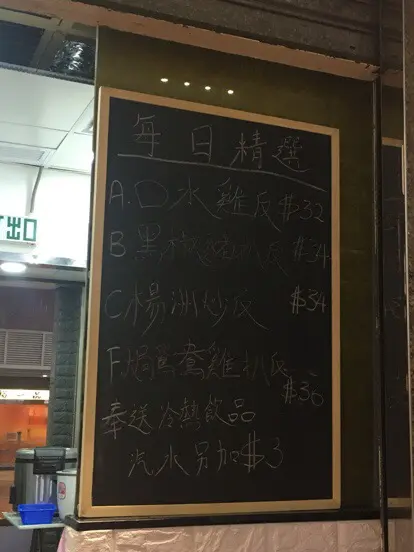 每日精選
A.口水雞反$32
B.黑椒 扒反$34
C.楊洲炒反 $34
F.焗鴛鴦雞扒反
$36
奉送冷熱飲品
汽水另加$3
出口